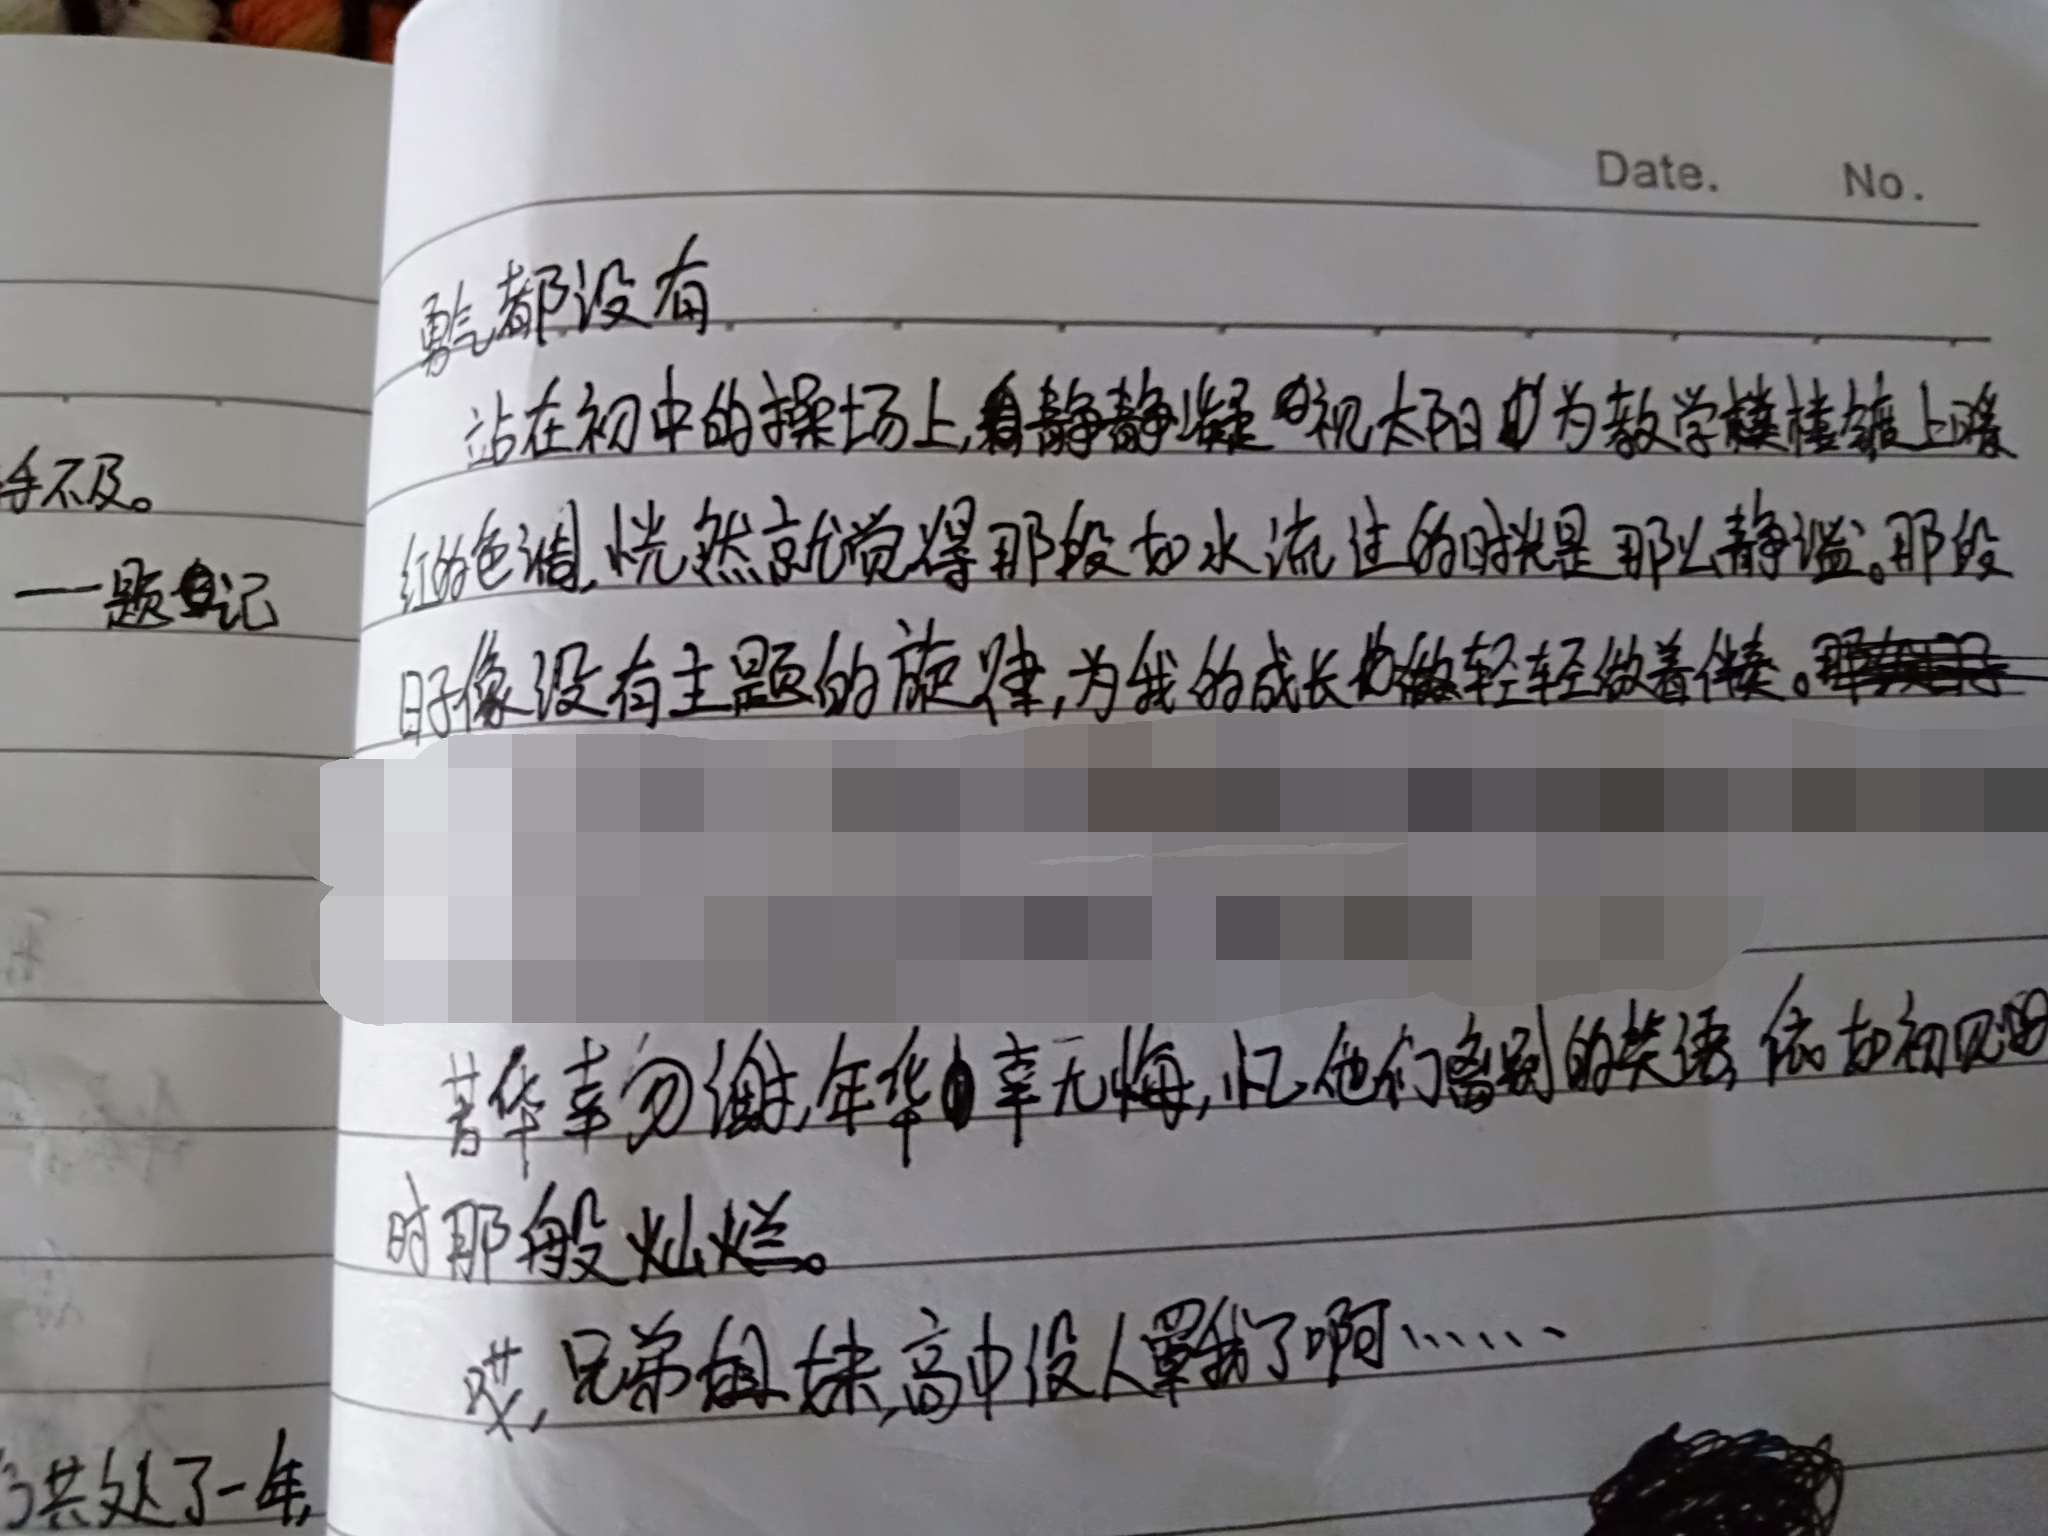 手不及。
——题记
共处了一年,
Date. No.
勇气都没有
站在初中的操场上,静静凝视太阳为教学楼镀上暖
红的色调,恍然就觉得那段如水流过的时光是那么静谧。那段
日子像没有主题的旋律,为我的成长轻轻做着伴奏。
菁华幸勿谢,年华幸无悔,忆他们离别的笑语,依如初见
时那般灿烂。
哎,兄弟姐妹,高中没人罩我了啊……